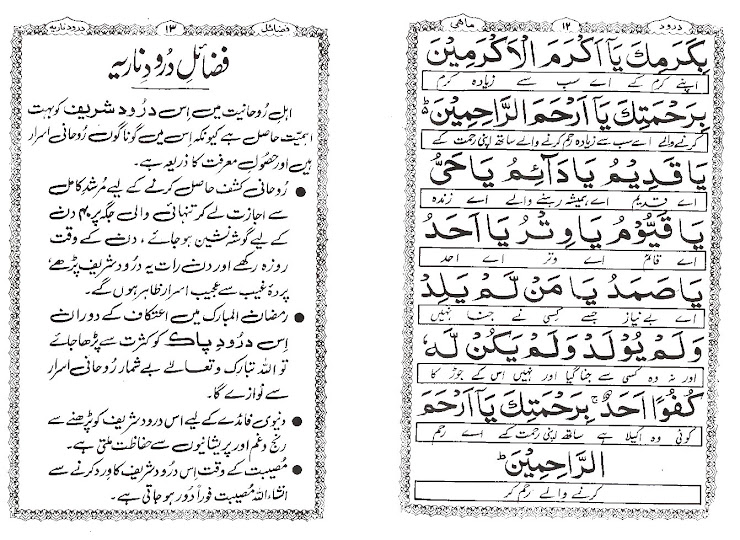 درود
۱۲
ماهی
بِكَرَمِكَ يَآ اَكْرَمَ الْاَكْرَمِيْنَ
اپنے کرم کے اے سب سے زیادہ کرم
بِرَحْمَتِكَ يَآ اَرْحَمَ الرَّاحِمِيْنَ ؕ
کرنے والے اے سب سے زیادہ رحم کرنے والے ساتھ اپنی رحمت کے
يَا قَدِيْمُ يَا دَآئِمُ يَا حَيُّ
اے قدیم اے ہمیشہ رہنے والے اے زندہ
يَا قَيُّوْمُ يَا وِتْرُ يَا اَحَدُ
اے قائم اے وتر اے احد
يَا صَمَدُ يَا مَنْ لَّمْ يَلِدْ
اے بے نیاز جسے کسی نے جنا نہیں
وَلَمْ يُوْلَدْ وَلَمْ يَكُنْ لَّهٗ
اور نہ وہ کسی سے جنا گیا اور نہیں اس کے جوڑ کا
كُفُوًا اَحَدٌ ۚ بِرَحْمَتِكَ يَآ اَرْحَمَ
کوئی وہ اکیلا ہے ساتھ اپنی رحمت کے اے رحم
الرَّاحِمِيْنَ ؕ
کرنے والے رحم کر
فضائل
۱۳
درود ناریہ
فضائلِ درُودِ ناریہ
اہلِ رُوحانیت میں اِس درُود شریف کو بہت
اہمیت حاصل ہے کیونکہ اِس میں گوناگوں رُوحانی اسرار
ہیں اور حصولِ معرفت کا ذریعہ ہے۔
● رُوحانی کشف حاصل کرنے کے لیے مُرشدِ کامل
سے اجازت لے کر تنہائی والی جگہ پر ۴۰ دن
کے لیے گوشہ نشین ہو جائے ، دن کے وقت
روزہ رکھے اور دن رات یہ درود شریف پڑھے،
پردۂ غیب سے عجیب اسرار ظاہر ہوں گے۔
● رمضان المبارک میں اعتکاف کے دوران
اِس درُودِ پاک کو کثرت سے پڑھا جائے
تو اللہ تبارک و تعالےٰ بے شمار رُوحانی اسرار
سے نوازے گا۔
● دنیوی فائدے کے لیے اس درود شریف کو پڑھنے سے
رنج و غم اور پریشانیوں سے حفاظت ملتی ہے۔
● مُصیبت کے وقت اِس درُود شریف کا وِرد کرنے سے
انشاء اللہ مُصیبت فوراً دُور ہو جاتی ہے۔